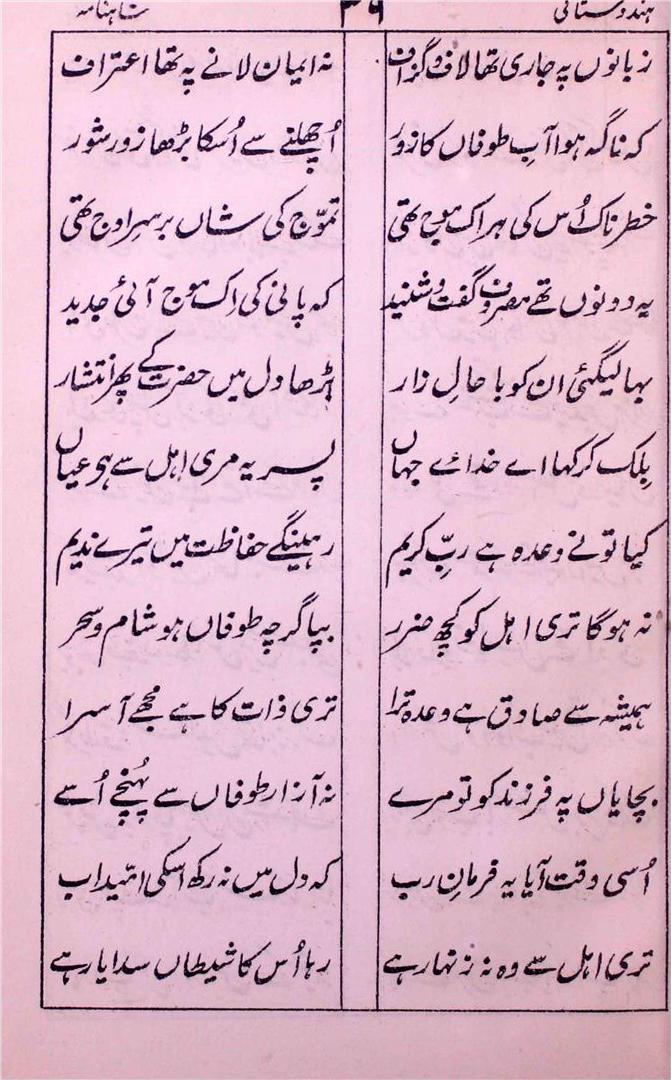 ہندوستانی ۳۹ شاہنامہ
زبانوں پہ جاری تھا لاف وگزاف نہ ایمان لانے پہ تھا اعتراف
کہ ناگہ ہوا آبِ طوفاں کا زور اُچھلنے سے اُسکا بڑھا زور شور
خطرناک اُس کی ہر اک موج تھی تموّج کی شاں برسرِ اوج تھی
یہ دونوں تھے مصروفِ گفت و شنید کہ پانی کی اِک موج آئی جدید
بہا لیگئی ان کو با حالِ زار بڑھا دل میں حضرت کے پھر انتشار
بِلک کر کہا اے خدائے جہاں پسر یہ مری اہل سے ہو عیاں
کیا تو نے وعدہ ہے ربِّ کریم رہینگے حفاظت میں تیرے ندیم
نہ ہوگا تری اہل کو کچھ ضرر بپا گرچہ طوفاں ہو شام وسحر
ہمیشہ سے صادق ہے وعدہ ترا تری ذات کا ہے مجھے آسرا
بچا یاں پہ فرزند کو تو مرے نہ آزار طوفاں سے پہُنچے اُسے
اُسی وقت آیا یہ فرمانِ رب کہ دل میں نہ رکھ اسکی امّید اب
تری اہل سے وہ نہ زنہار ہے رہا اُس کا شیطاں سدا یار ہے